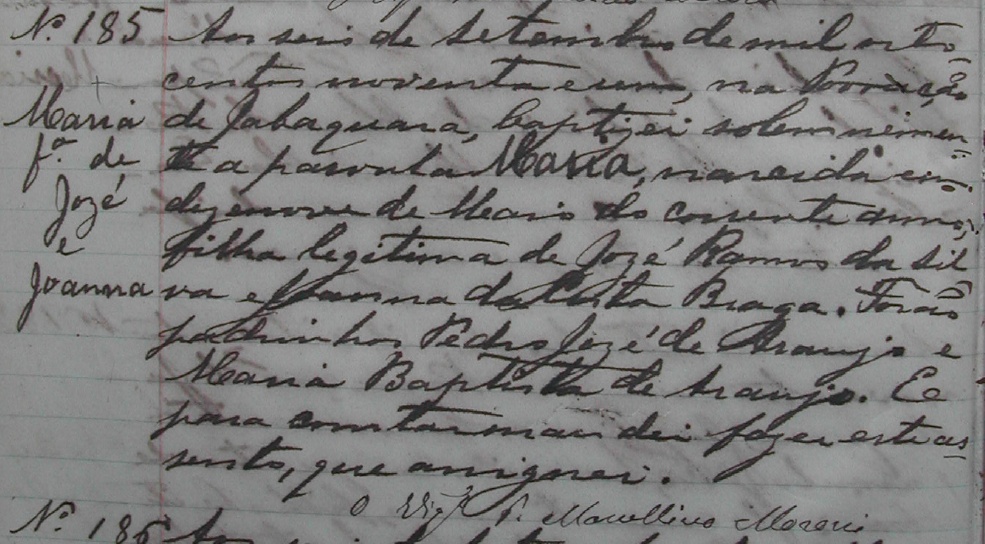 Nº 185 Aos seis de Setembro de mil oito
centos noventa e um, na Povoação
Maria de Jabaquara, baptizei solemnemen=
fª. de te a parvula Maria, nascida em
Jozé dezenove de Maio do corrente anno,
e filha legitima de Jozé Ramos da Sil
Joanna va e Joanna da Costa Braga. Forão
padrinhos Pedro Jozé de Araujo e
Maria Baptista de Araujo. E
para constar mandei fazer este as
sento, que assignei.
O Vigº P. Marcellino
Nº 186 Aos